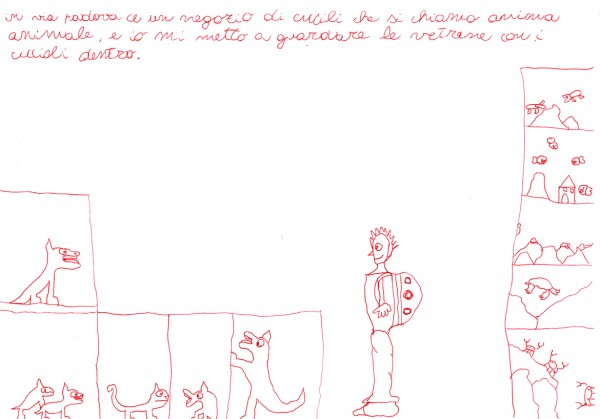 in via padova ce un negozio di cucili che si chiama anima
animale, e io mi metto a guardare le vetrine con i
cuccioli dentro.